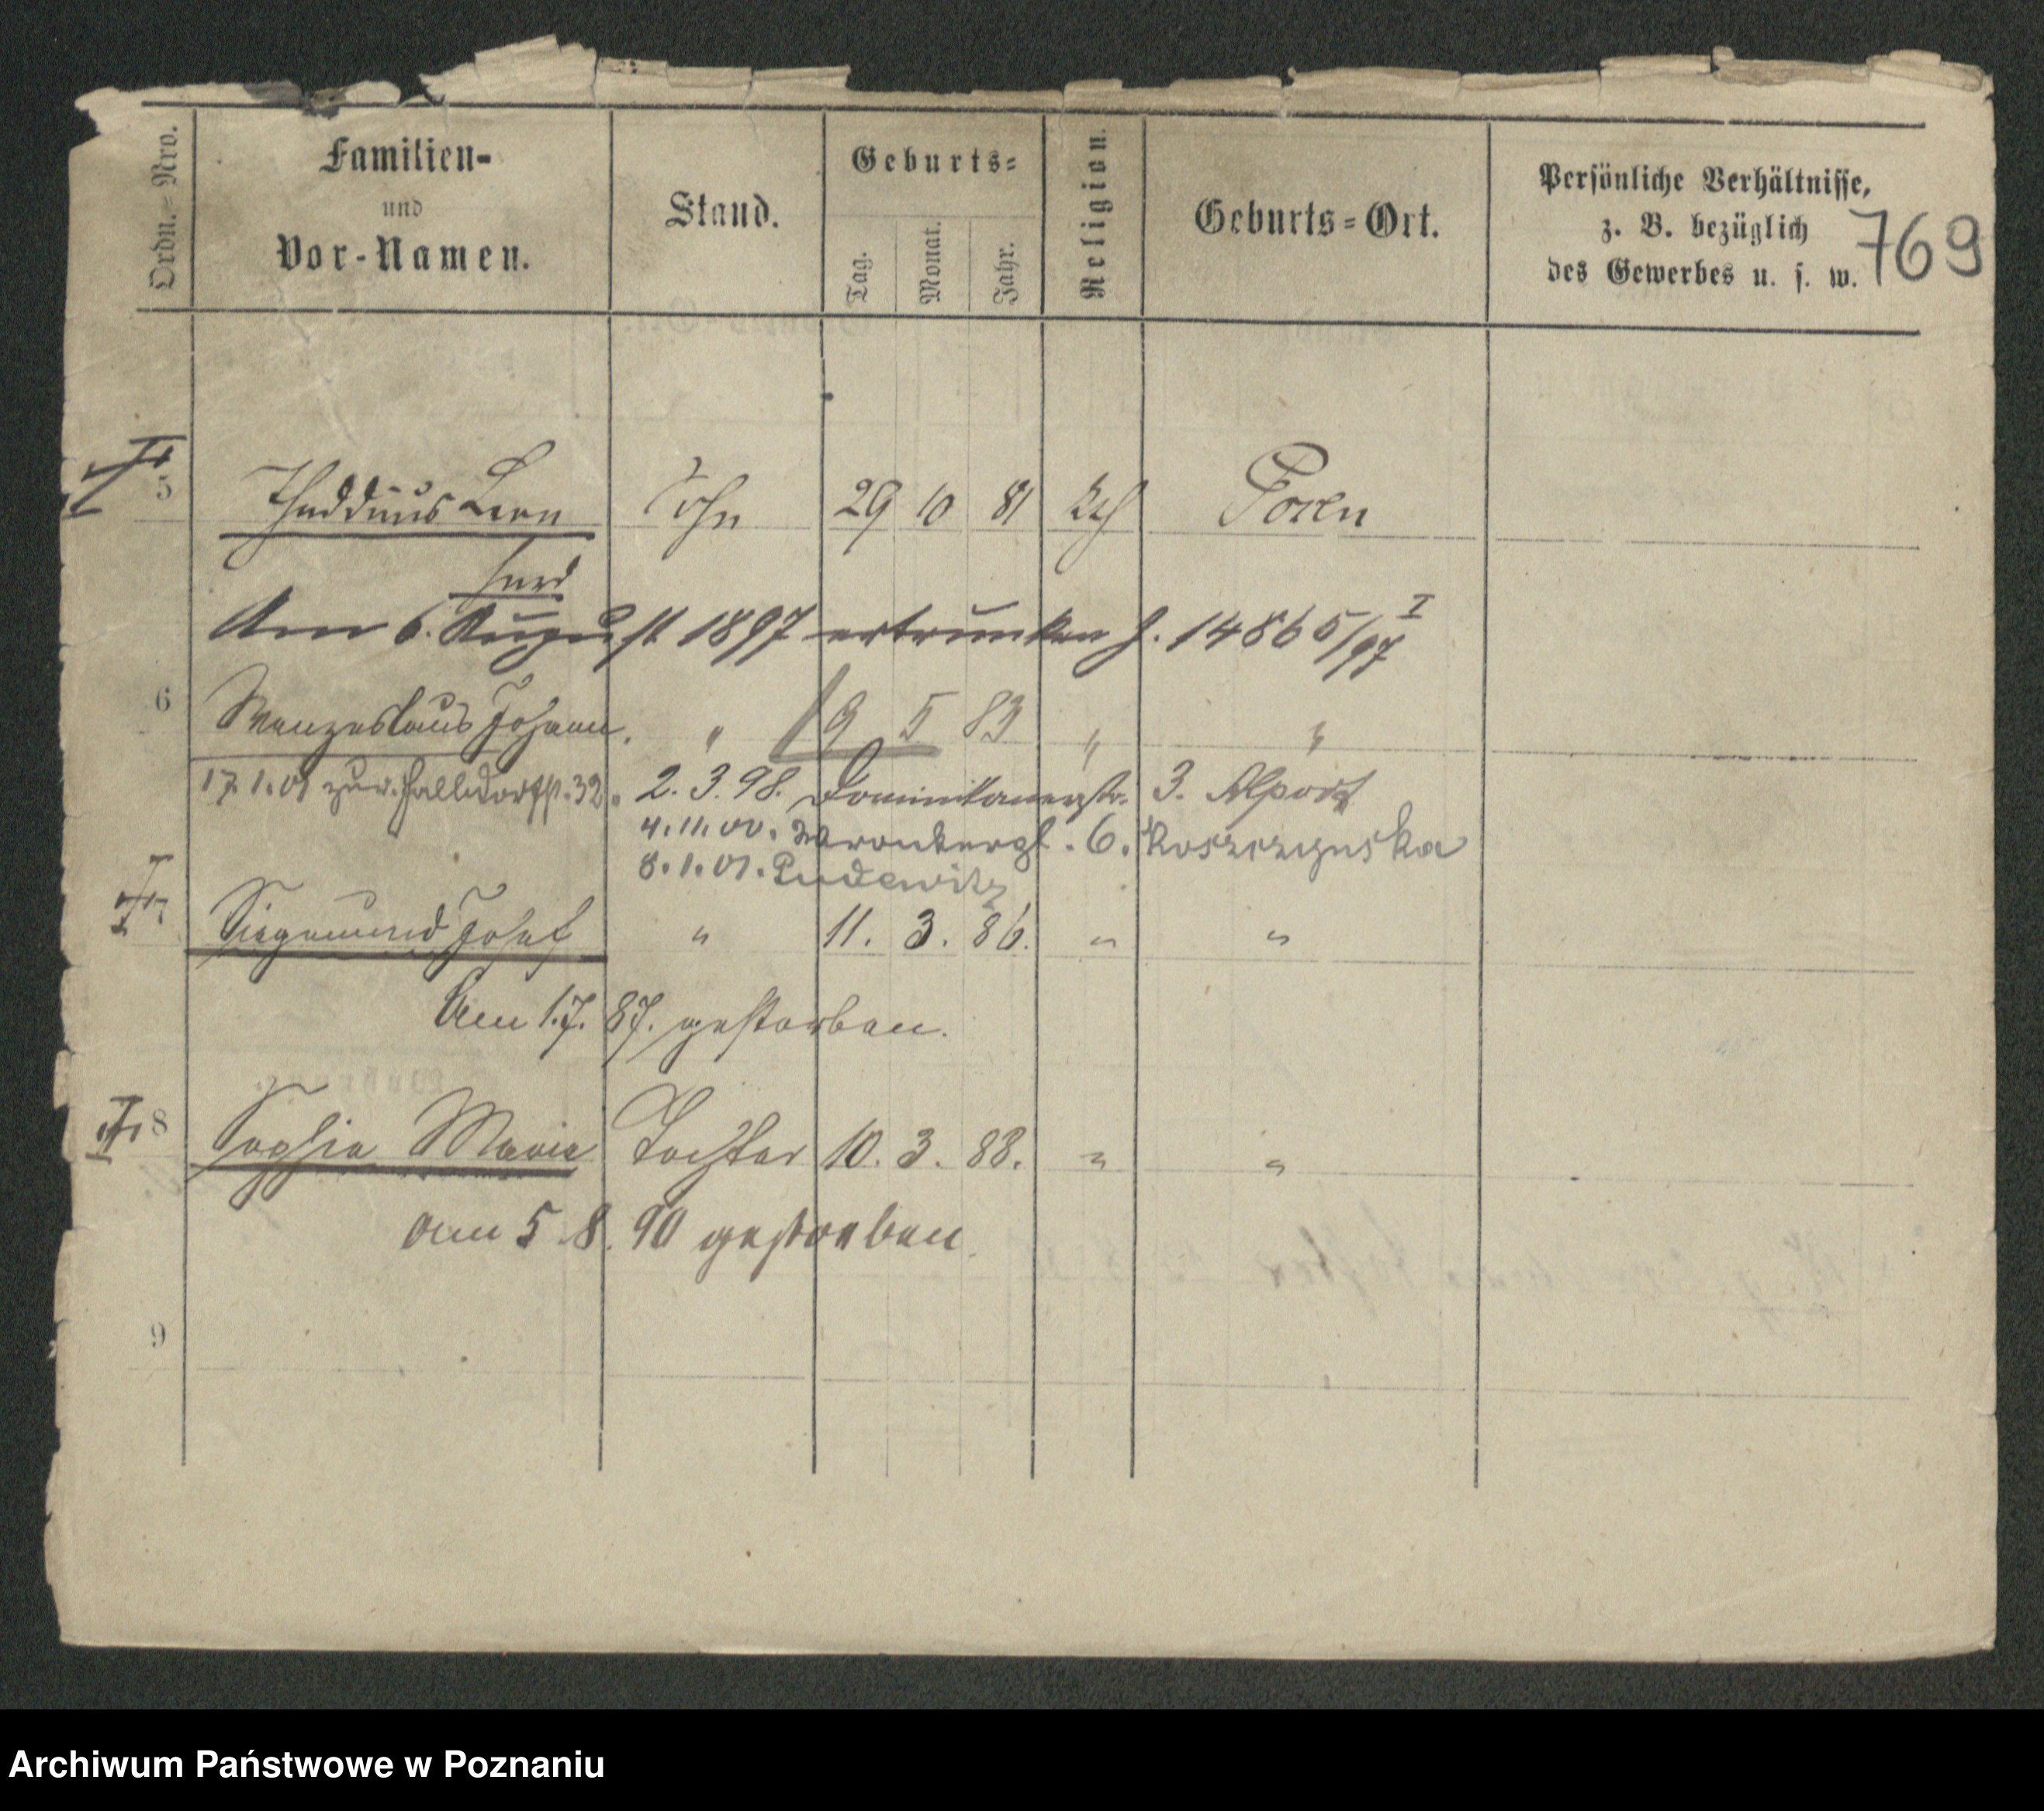 Ordn.=Nro.
Familien-
und
Vor-Namen.
Stand.
Geburts=
Tag.
Monat.
Jahr.
Religion.
Geburts=Ort.
Persönliche Verhältnisse,
z. B. bezüglich
des Gewerbes u. s. w.
769
5 Thaddäus Leon Sohn 29 10 81 kth Posen
Am 6. August 1897 ertrunken J. 14865/97 I
6 Wenzeslaus Johann. " 19 5 83 " "
17.1.01 zur. Halldorfstr. 32. 2.3.98. Dominikanerstr. 3. Alport
4.11.00. Wronkerpl. 6. Koszczynska
8.1.01. Pudewitz
7 Siegmund Josef " 11. 3. 86. " "
Am 1.7.87. gestorben.
8 Sophia Maria Tochter 10. 3. 88. " "
am 5.8.90 gestorben.
9
Archiwum Państwowe w Poznaniu